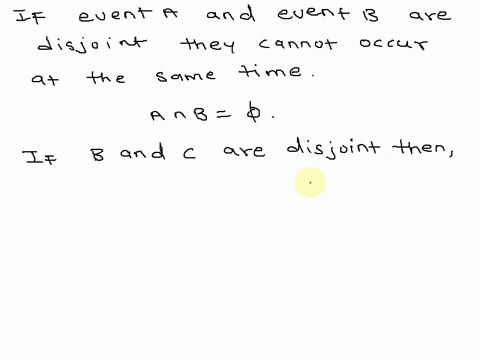 IF event A and event B are
disjoint they cannot occur
at the same time.
A ∩ B = ϕ.
IF B and C are disjoint then,